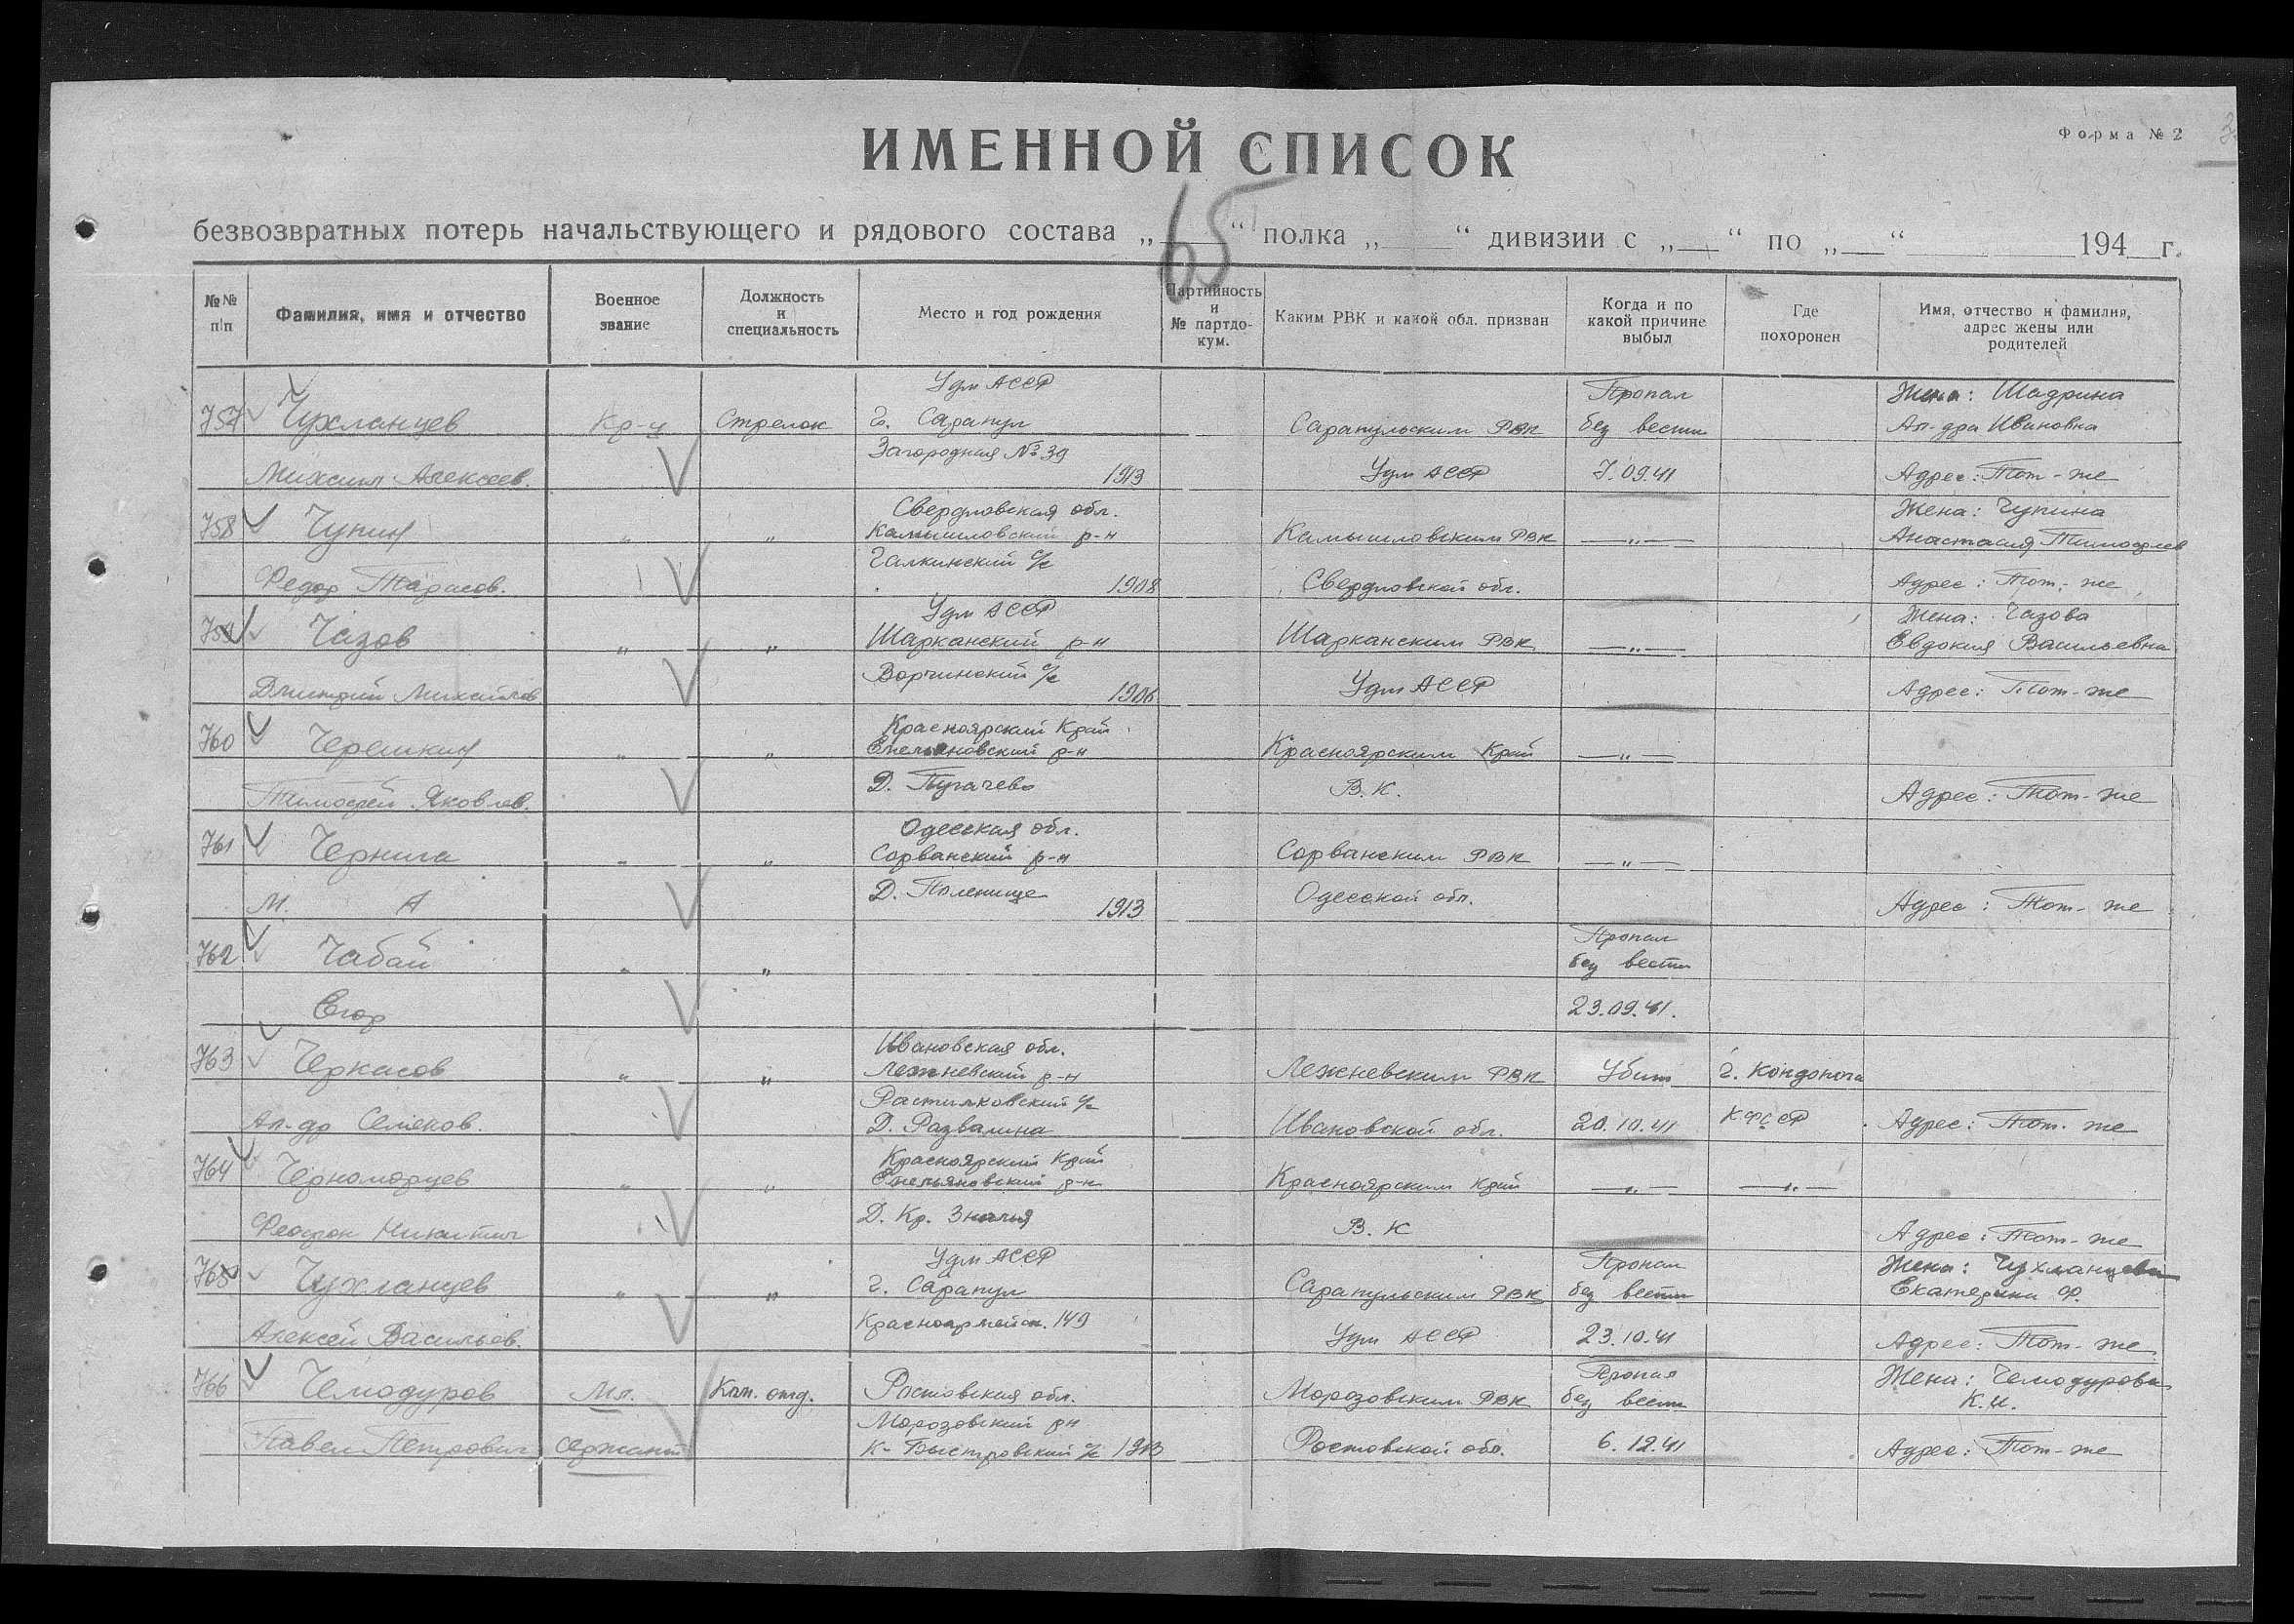 Форма № 2
ИМЕННОЙ СПИСОК
65
безвозвратных потерь начальствующего и рядового состава „ “ полка „ “ дивизии с „ “ по „ “ 194 г.
№№ п/п
Фамилия, имя и отчество
Военное звание
Должность и специальность
Место и год рождения
Партийность и № партдокум.
Каким РВК и какой обл. призван
Когда и по какой причине выбыл
Где похоронен
Имя, отчество и фамилия, адрес жены или родителей
Удм АССР Пропал Жена: Шадрина
757 Чухланцев Кр-ц Стрелок г. Сарапул Сарапульским РВК без вести Ал-дра Ивановна
Загородная № 39
Михаил Алексеев. 1913 Удм АССР 7.09.41 Адрес: Тот-же
Свердловская обл. Жена: Чупина
758 Чупин „ „ Камышловский р-н Камышловским РВК —„— Анастасия Тимофеев
Галкинский с/с
Федор Тарасов. 1908 Свердловской обл. Адрес: Тот-же
Удм АССР Жена: Чазова
759 Чазов „ „ Шарканский р-н Шарканским РВК —„— Евдокия Васильевна
Ворчинский с/с
Дмитрий Михайлов 1906 Удм АССР Адрес: Тот-же
Красноярский Край
760 Черешкин „ „ Емельяновский р-н Красноярским Край —„—
Д. Пугачево В.К.
Тимофей Яковлев. Адрес: Тот-же
Одесская обл.
761 Чернига „ „ Сорванский р-н Сорванским РВК —„—
Д. Одесской обл.
М. А 1913 Адрес: Тот-же
Пропал
762 Чабай „ „ без вести
Егор 23.09.41.
Ивановская обл.
763 Черкасов „ „ Лежневский р-н Лежневским РВК Убит г. Кондопога
Растилковский с/с
Ал-др Семенов. Д. Развалина Ивановской обл. 20.10.41 КФССР Адрес: Тот-же
Красноярский Край
764 Черноморцев „ „ Емельяновский р-н Красноярским Край —„— —„—
Д. Кр. В.К
Никитич Адрес: Тот-же
Удм АССР Пропал Жена: Чухланцева
765 Чухланцев „ „ г. Сарапул Сарапульским РВК без вести Екатерина Ф.
Красноармейск. 149
Алексей Васильев. Удм АССР 23.10.41 Адрес: Тот-же
Пропал Жена: Чемодурова
766 Чемодуров Мл. Ком. отд. Ростовская обл. Морозовским РВК без вести К.И.
Морозовский рн
Павел Петрович сержант К-Быстровский с/с 1913 Ростовской обл. 6.12.41 Адрес: Тот-же